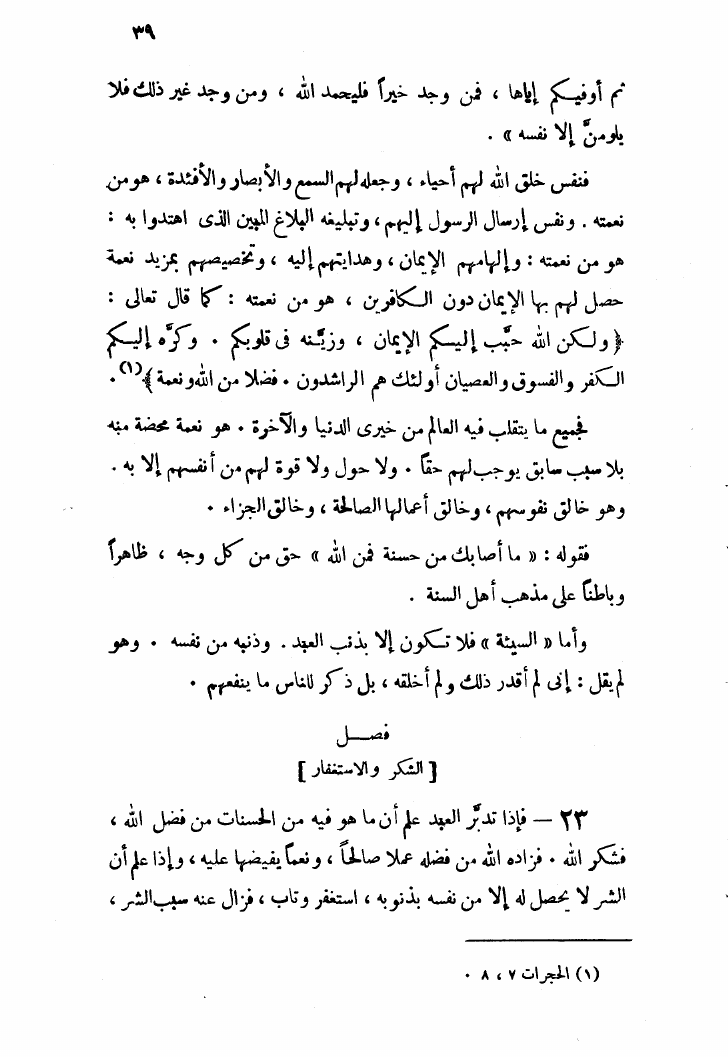 ٣٩
ثم أوفيكم إياها ، فمن وجد خيراً فليحمد الله ، ومن وجد غير ذلك فلا
يلومنَّ إلا نفسه » .
فنفس خلق الله لهم أحياء ، وجعله لهم السمع والأبصار والأفئدة ، هو من
نعمته . ونفس إرسال الرسول إليهم ، وتبليغه البلاغ المبين الذى اهتدوا به :
هو من نعمته : وإلهامهم الإيمان ، وهدايتهم إليه ، وتخصيصهم بمزيد نعمة
حصل لهم بها الإيمان دون الكافرين ، هو من نعمته : كما قال تعالى :
﴿ ولكن الله حبَّب إليكم الإيمان ، وزيَّنه فى قلوبكم . وكرَّه إليكم
الكفر والفسوق والعصيان أولئك هم الراشدون . فضلا من الله ونعمة ﴾(١) .
فجميع ما يتقلب فيه العالم من خيرى الدنيا والآخرة . هو نعمة محضة منه
بلا سبب سابق يوجب لهم حقاً . ولا حول ولا قوة لهم من أنفسهم إلا به .
وهو خالق نفوسهم ، وخالق أعمالها الصالحة ، وخالق الجزاء .
فقوله : « ما أصابك من حسنة فمن الله » حق من كل وجه ، ظاهراً
وباطناً على مذهب أهل السنة .
وأما « السيئة » فلا تكون إلا بذنب العبد . وذنبه من نفسه . وهو
لم يقل : إنى لم أقدر ذلك ولم أخلقه ، بل ذكر للناس ما ينفعهم .
فصـــل
[ الشكر والاستغفار ]
٢٣ — فإذا تدبَّر العبد علم أن ما هو فيه من الحسنات من فضل الله ،
فشكر الله . فزاده الله من فضله عملا صالحاً ، ونعماً يفيضها عليه ، وإذا علم أن
الشر لا يحصل له إلا من نفسه بذنوبه ، استغفر وتاب ، فزال عنه سبب الشر ،
(١) الحجرات ٧ ، ٨ .